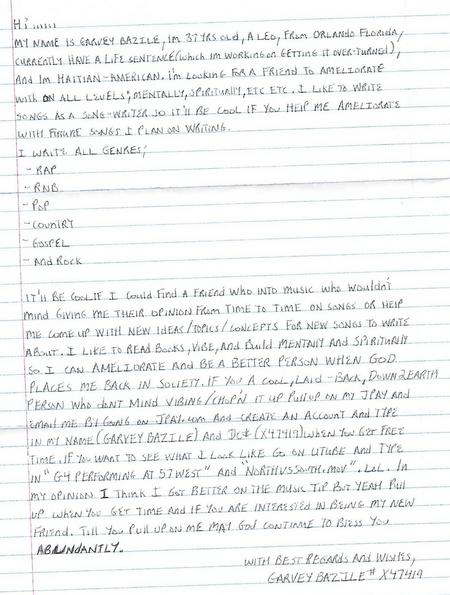 Hi ......
MY NAME IS GARVEY BAZILE, IM 37 YRS OLD, A LEO, FROM ORLANDO FLORIDA,
CURRENTLY HAVE A LIFE SENTENCE (which IM WORKING ON GETTING IT OVER-TURNED),
AND IM HAITIAN-AMERICAN. I'M LOOKING FOR A FRIEND TO AMELIORATE
WITH ON ALL LEVELS; MENTALLY, SPIRITUALLY, ETC ETC. I LIKE TO WRITE
SONGS AS A SONG-WRITER SO IT'LL BE COOL IF YOU HELP ME AMELIORATE
WITH FUTURE SONGS I PLAN ON WRITING.
I WRITE ALL GENRES;
- RAP
- RNB
- POP
- COUNTRY
- GOSPEL
- AND ROCK
IT'LL BE COOL IF I COULD FIND A FRIEND WHO INTO MUSIC WHO WOULDN'T
MIND GIVING ME THEIR OPINION FROM TIME TO TIME ON SONGS OR HELP
ME COME UP WITH NEW IDEAS/TOPICS/CONCEPTS FOR NEW SONGS TO WRITE
ABOUT. I LIKE TO READ BOOKS, VIBE, AND BUILD MENTALLY AND SPIRITUALLY
SO I CAN AMELIORATE AND BE A BETTER PERSON WHEN GOD
PLACES ME BACK IN SOCIETY. IF YOU A COOL, LAID-BACK, DOWN 2 EARTH
PERSON WHO DON'T MIND VIBING/CHOP'N IT UP PULL UP ON MY JPAY AND
EMAIL ME BY GOING ON JPAY.COM AND CREATE AN ACCOUNT AND TYPE
IN MY NAME (GARVEY BAZILE) AND DC# (X47419) WHEN YOU GET FREE
TIME. IF YOU WANT TO SEE WHAT I LOOK LIKE GO ON UTUBE AND TYPE
IN "G4 PERFORMING AT 57 WEST" AND "NORTHVSSOUTH.MOV". LOL. IN
MY OPINION I THINK I GOT BETTER ON THE MUSIC TIP BUT YEAH PULL
UP WHEN YOU GET TIME AND IF YOU ARE INTERESTED IN BEING MY NEW
FRIEND. TILL YOU PULL UP ON ME MAY GOD CONTINUE TO BLESS YOU
ABUNDANTLY.
WITH BEST REGARDS AND WISHES,
GARVEY BAZILE # X47419